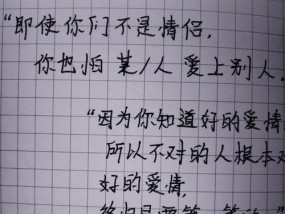 "即使你们不是情侣,
你也怕某/人爱上别人.
"因为你知道好的爱情
所以不对的人根本
好的爱情,